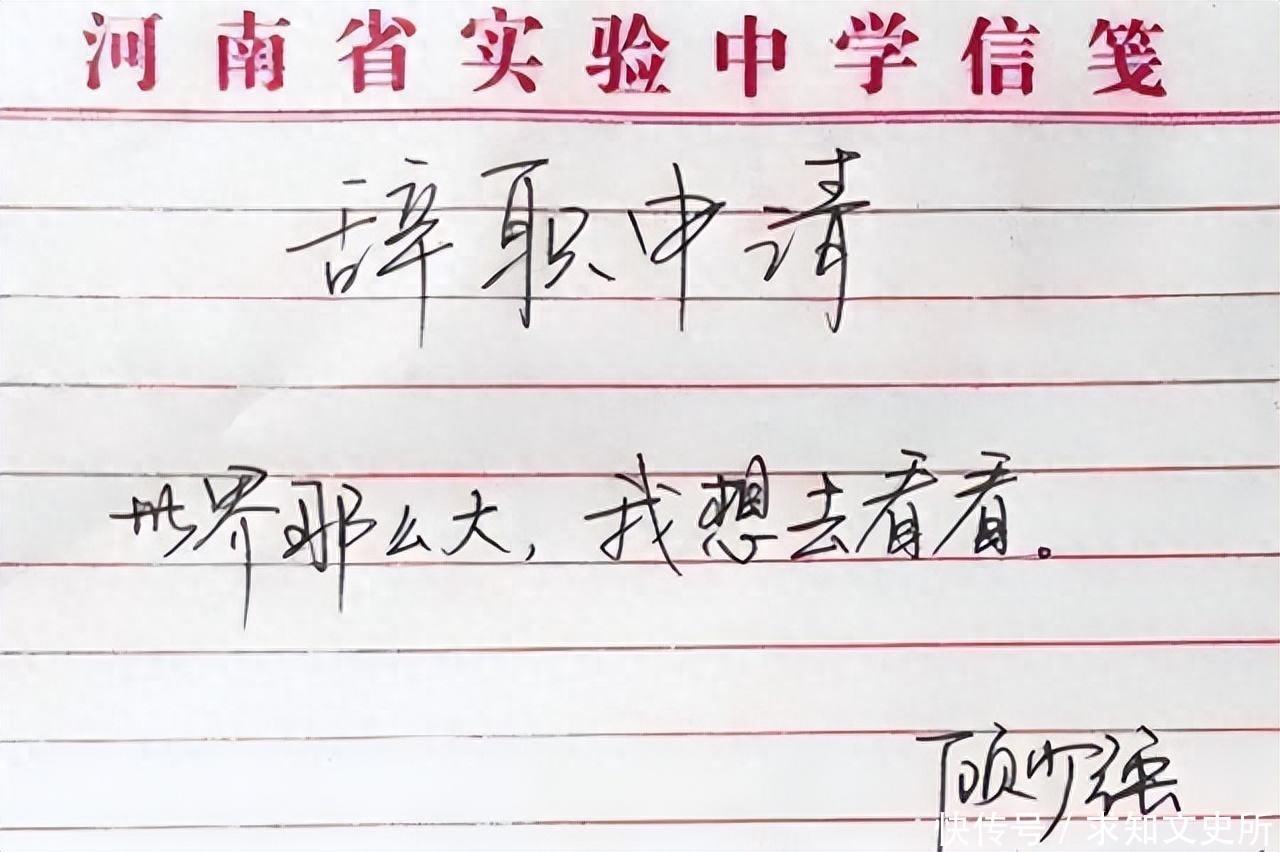 河南省实验中学信笺
辞职申请
世界那么大，我想去看看。
顾少强
快传号 / 求知文史所